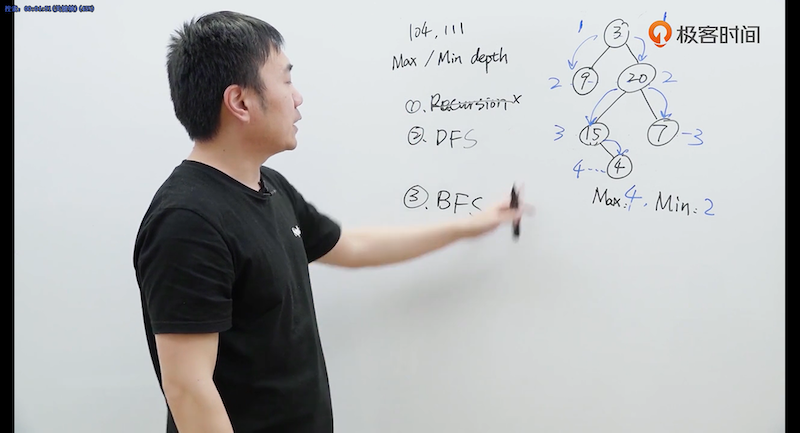 极客时间
104, 111
Max / Min depth
①. Recursion x
②. DFS
③. BFS
1 3 1
2 9 20 2
3 15 7 3
4 4
Max: 4, Min: 2